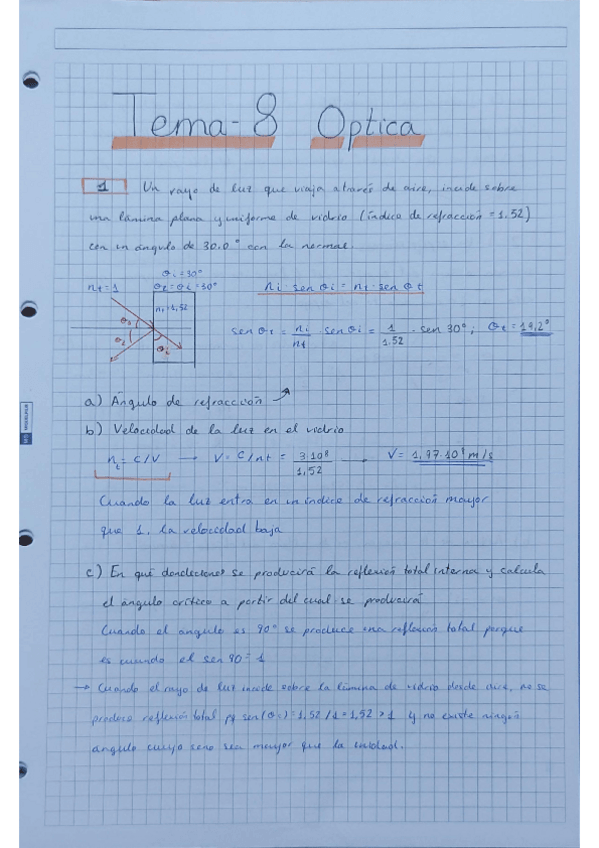 Tema-8 Optica
1 Un rayo de luz que viaja a través de aire, incide sobre
una lámina plana y uniforme de vidrio (índice de refracción = 1.52)
con un ángulo de 30.0° con la normal.
θi = 30°
ni = 1 θr = θi = 30° ni · sen θi = nt · sen θt
nt = 1,52
sen θt = ni/nt · sen θi = 1/1.52 · sen 30° ; θt = 19,2°
a) Ángulo de refracción
b) Velocidad de la luz en el vidrio
ni = C/V → V = C/nt = 3·10⁸/1,52 → V = 1,97·10⁸ m/s
Cuando la luz entra en un índice de refracción mayor
que 1, la velocidad baja
c) En qué condiciones se producirá la reflexión total interna y calcula
el ángulo crítico a partir del cual se producirá
Cuando el angulo es 90° se produce una reflexión total porque
es cuando el sen 90 = 1
→ Cuando el rayo de luz incide sobre la lámina de vidrio desde aire, no se
produce reflexión total pq sen(θc) = 1,52 / 1 = 1,52 > 1 y no existe ningún
angulo cuyo seno sea mayor que la unidad.